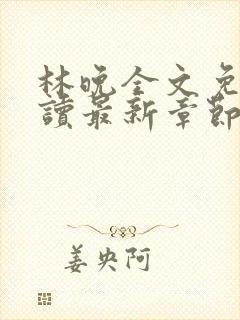 林晚全文免
讀最新章節
姜央阿